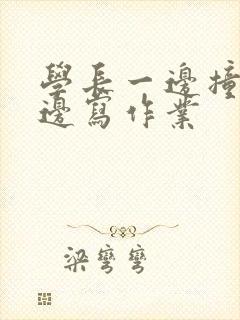 學長一邊撞
邊寫作業
梁彎彎